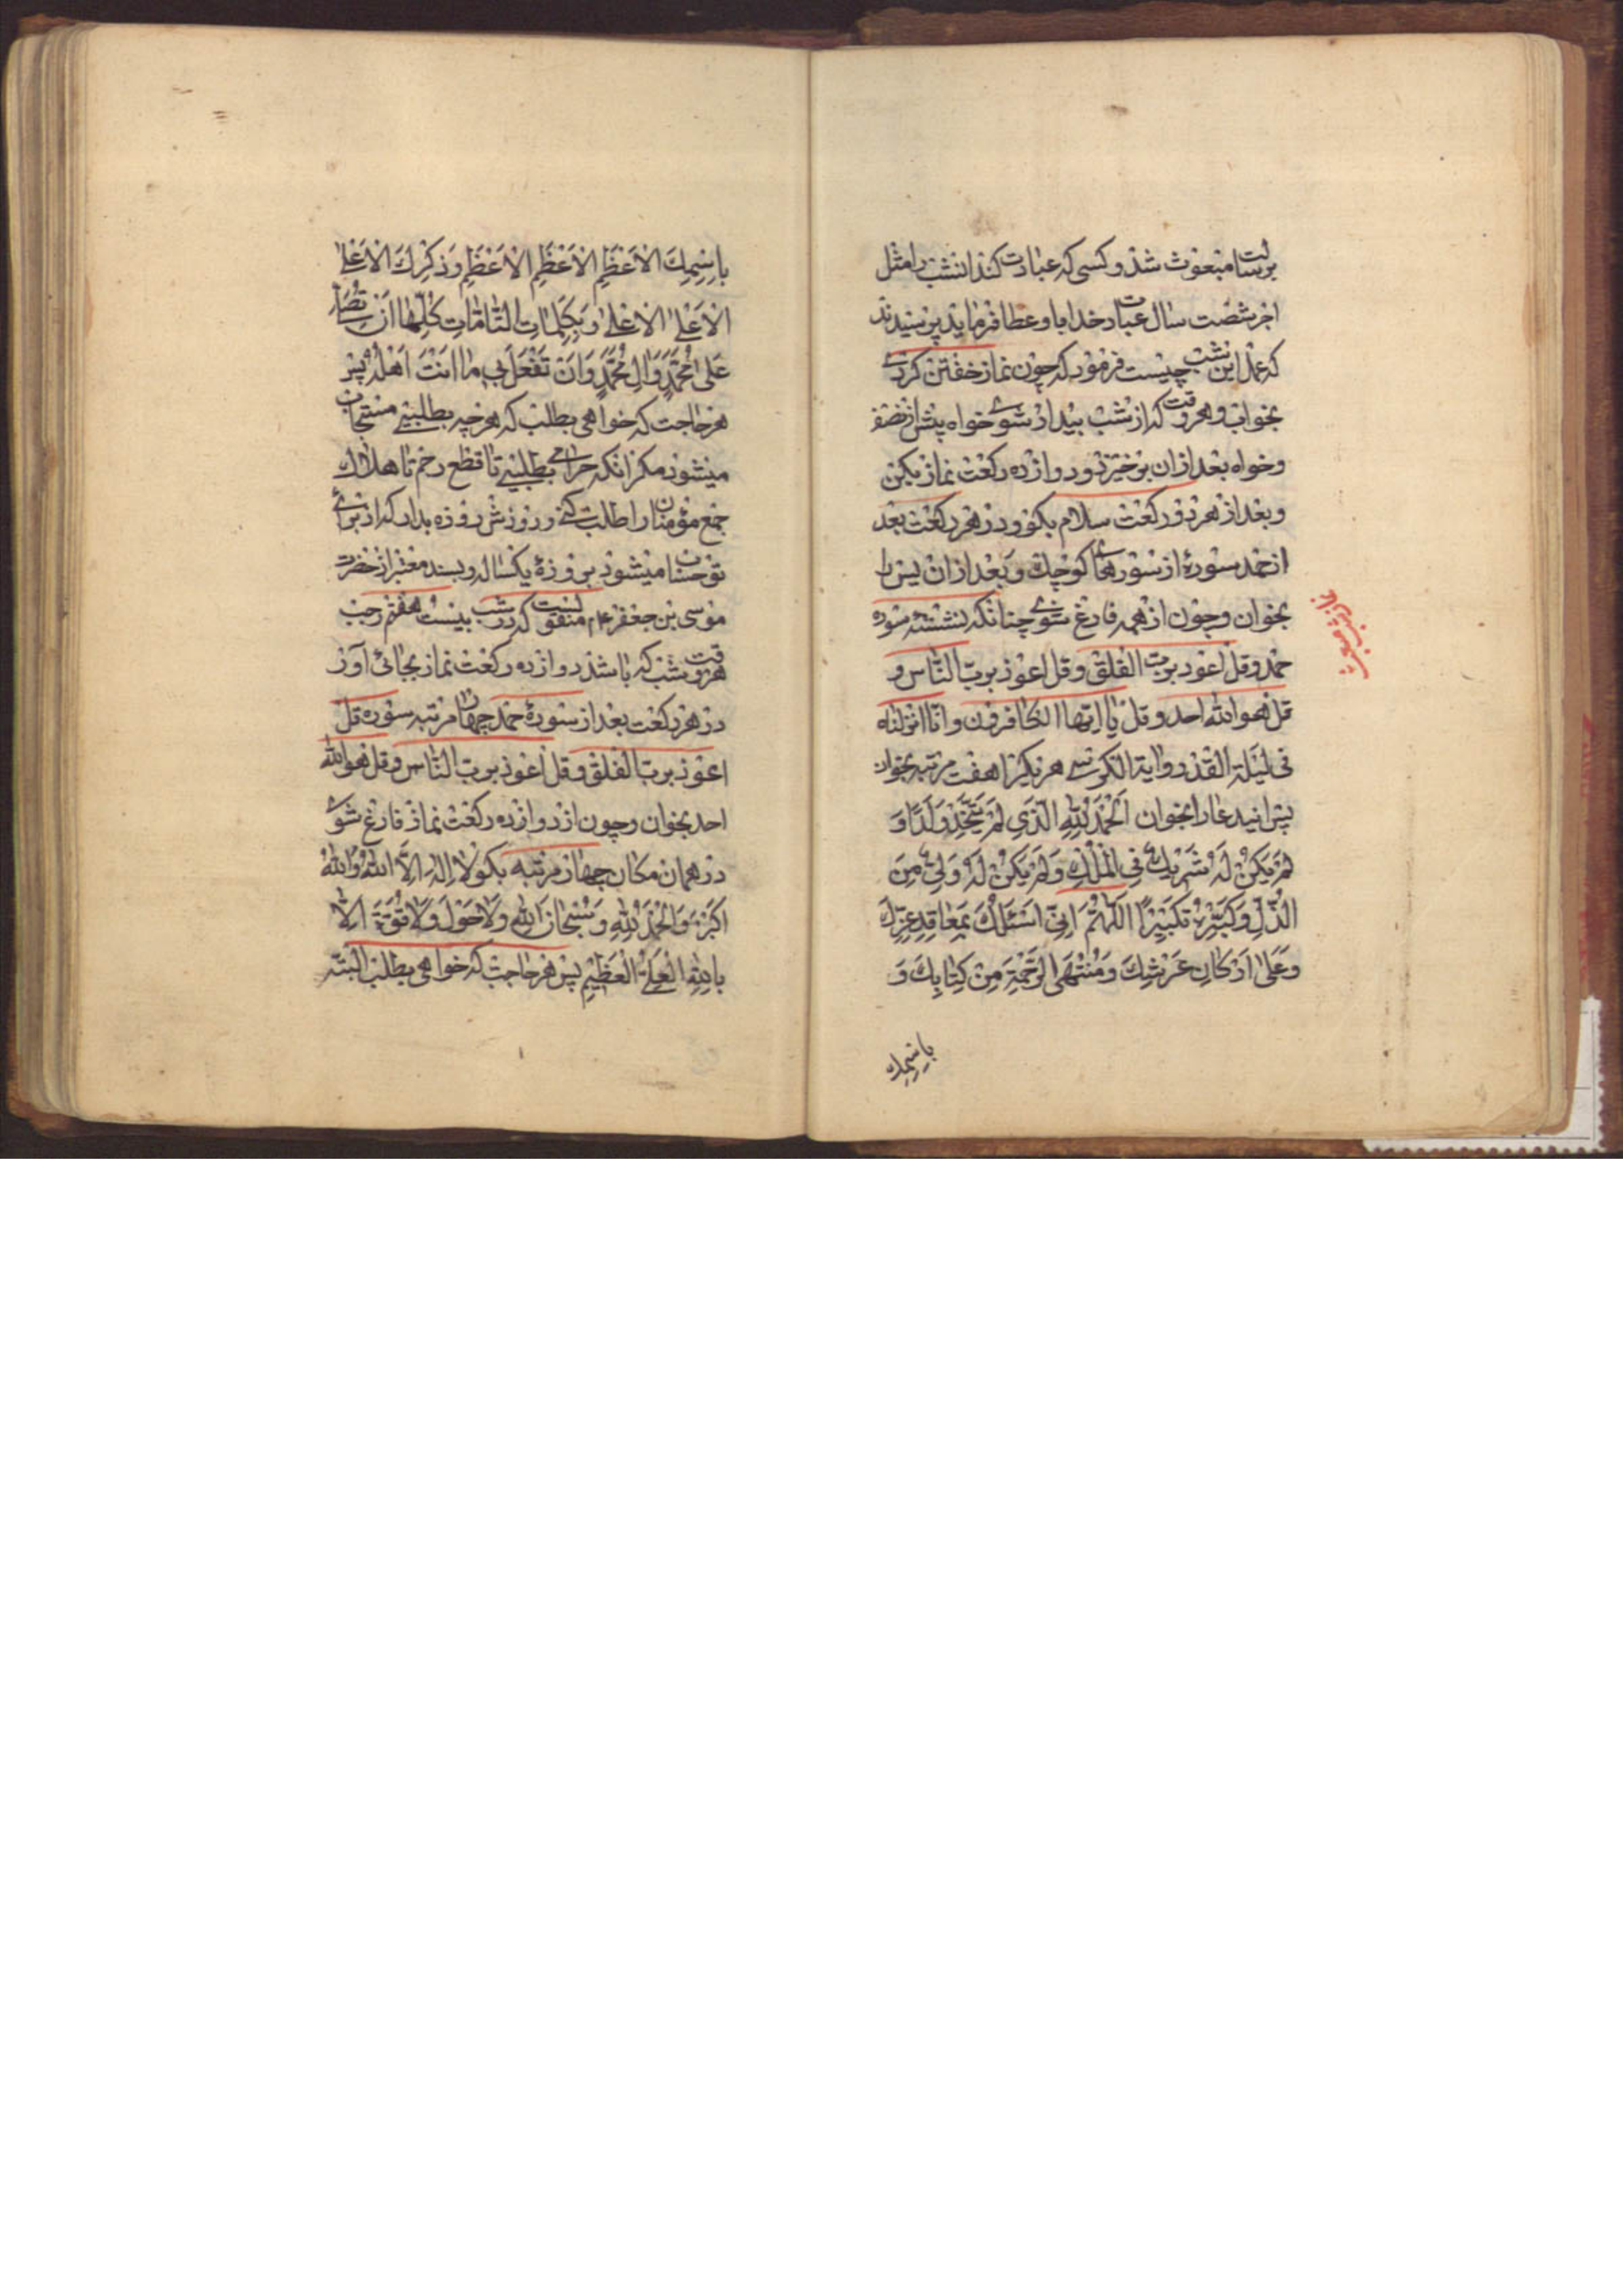 برسالت مبعوث شد و کسی که عبادت کند انشب را مثل
اجر شصت سال عبادت خدا باو عطا فرماید پرسیدند
که عمل این شب چیست فرمود که چون نماز خفتن کردی
بخواب و هر وقت که از شب بیدار شوی خواه پیش از نصف
و خواه بعد از ان برخیز و دوازده رکعت نماز بکن
و بعد از هر دو رکعت سلام بکو و در هر رکعت بعد
از حمد سورهٔ از سورهای کوچک و بعد از ان یس را
بخوان و چون از همه فارغ شوی چنانکه نشستهٔ سوره
حمد و قل اعوذ برب الفلق و قل اعوذ برب الناس و
قل هو الله احد و قل یا ایها الکافرون و انا انزلناه
فی لیلة القدر و ایة الکرسی هر یکرا هفت مرتبه بخوان
پس اینید عارا بخوان اَلْحَمْدُ لِلّٰهِ الَّذی لَمْ یَتَّخِذْ وَلَدًا وَ
لَمْ یَکُنْ لَهُ شَرِیكٌ فِی الْمُلْكِ وَلَمْ یَکُنْ لَهُ وَلِیٌّ مِنَ
الذُّلِّ وَکَبِّرْهُ تَکْبِیرًا اَللّٰهُمَّ اِنّی اَسْئَلُكَ بِمَعاقِدِ عِزِّكَ
وَعَلیٰ اَرْکانِ عَرْشِكَ وَمُنْتَهَی الرَّحْمَةِ مِنْ کِتابِكَ وَ
باِسْمِكَ
نماز شب مبعث
باِسْمِكَ الاَعْظَمِ الاَعْظَمِ الاَعْظَمِ وَذِکْرِكَ الاَعْلَی
الاَعْلَی الاَعْلیٰ وَبِکَلِماتِكَ التّامّاتِ کُلِّها اَنْ تُصَلِّیَ
عَلیٰ مُحَمَّدٍ وَالِ مُحَمَّدٍ وَاَنْ تَفْعَلَ بی ما اَنْتَ اَهْلُهُ پس
هر حاجت که خواهی بطلب که هر چه بطلبی مستجاب
میشود مکر انکه حرامی بطلبی تا قطع رحم تا هلاك
جمع مؤمنان را طلب کنی و روزش روزه بدار که از برای
تو حساب میشود بروزهٔ یکساله و بسند معتبر از حضرت
موسی بن جعفر ع م منقولست که در شب بیست هفتم رجب
هر وقت شب که باشد دوازده رکعت نماز بجائی آور
در هر رکعت بعد از سورهٔ حمد چهار مرتبه سوره قل
اعوذ برب الفلق و قل اعوذ برب الناس و قل هو الله
احد بخوان و چون از دوازده رکعت نماز فارغ شوی
در همان مکان چهار مرتبه بکو لا اِلٰهَ اِلَّا اللّٰهُ وَاللّٰهُ
اَکْبَرُ وَالْحَمْدُ لِلّٰهِ وَسُبْحانَ اللّٰهِ وَلا حَوْلَ وَلا قُوَّةَ اِلّا
بِاللّٰهِ الْعَلِیِّ الْعَظیمِ پس هر حاجت که خواهی بطلب البته